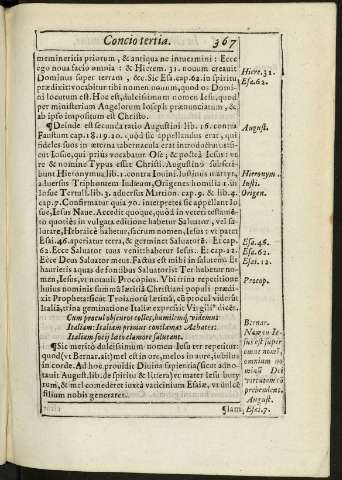 Concio tertia. 367
memineritis priorum, & antiqua ne intueamini: Ecce
ego noua facio omnia: & Hierem. 31. nouum creauit
Dominus super terram, &c. Sic Esa. cap. 62. in spiritu
prædixit: vocabitur tibi nomen nouum, quod os Domi-
ni locutum est. Hoc est, dulcissimum nomen Iesu, quod
per ministerium Angelorum Ioseph prænunciatum, &
ab ipso impositum est Christo.
Hiere. 31.
Esa. 62.
¶Deinde est secunda ratio Augustini lib. 16. contra
Faustum cap. 18. 19. 20. quòd sic appellandus erat, qui
fideles suos in æterna tabernacula erat introducturus: si-
cut Iosue, qui prius vocabatur Ose; & postea Iesus: ve
re & nomine Typus esse Christi. Augustino subscri-
bunt Hieronymus lib. 1. contra Iouini. Iustinus martyr,
aduersus Triphontem Iudæum, Origenes homilia 1. in
Iosue Tertull. lib. 3. aduersus Martion. cap. 9. & lib. 4.
cap. 7. Confirmatur quia 70. interpretes sic appellant Io-
sue, Iesus Naue. Accedit quoque, quòd in veteri testamē-
to quoties in volgata editione habetur Saluator, vel sa-
lutare, Hebraicè habetur, sacrum nomen, Iesus: vt patet
Esai. 46. aperiatur terra, & germinet Saluatorē. Et cap.
62. Ecce Saluator tuus venit: habetur Iesus. Et cap. 12.
Ecce Deus Saluator meus. Factus est mihi in salutem: Et
haurietis aquas de fontibus Saluatoris: Ter habetur no-
men, Iesus, vt notauit Procopius. Vbi trina repetitione
huius nominis summã lætitiã Christiani populi prædi-
xit Propheta: sicut Troianorũ lætitiã, cũ procul viderũt
Italiã, trina geminatione Italiæ expressit Virgili⁹ dicēs.
August.
Hieronym.
Iusti.
Origen.
Esa. 46.
Esa. 62.
Esai. 12.
Procop.
Cum procul obscuros colles, humilemq; videmus
Italiam: Italiam primus conclamat Achates:
Italiam socij læto clamore salutant.
¶Sic meritò dulcissimum nomen Iesu ter repetitur:
quod (vt Bernar. ait) mel est in ore, melos in aure, iubilus
in corde. Ad hoc prouidit Diuina sapientia (sicut adno-
tauit August. lib. de spiritu & littera) ec mater Iesu buty
rum, & mel comederet iuxtà vaticinium Esaiæ, vt dulcē
filium nobis generaret.
Bernar.
Nomen Ie-
sus est super
omne nomē,
omnium no
minũ Dei
virtutem cō
prehendens.
August.
¶Iam, Esai. 7.